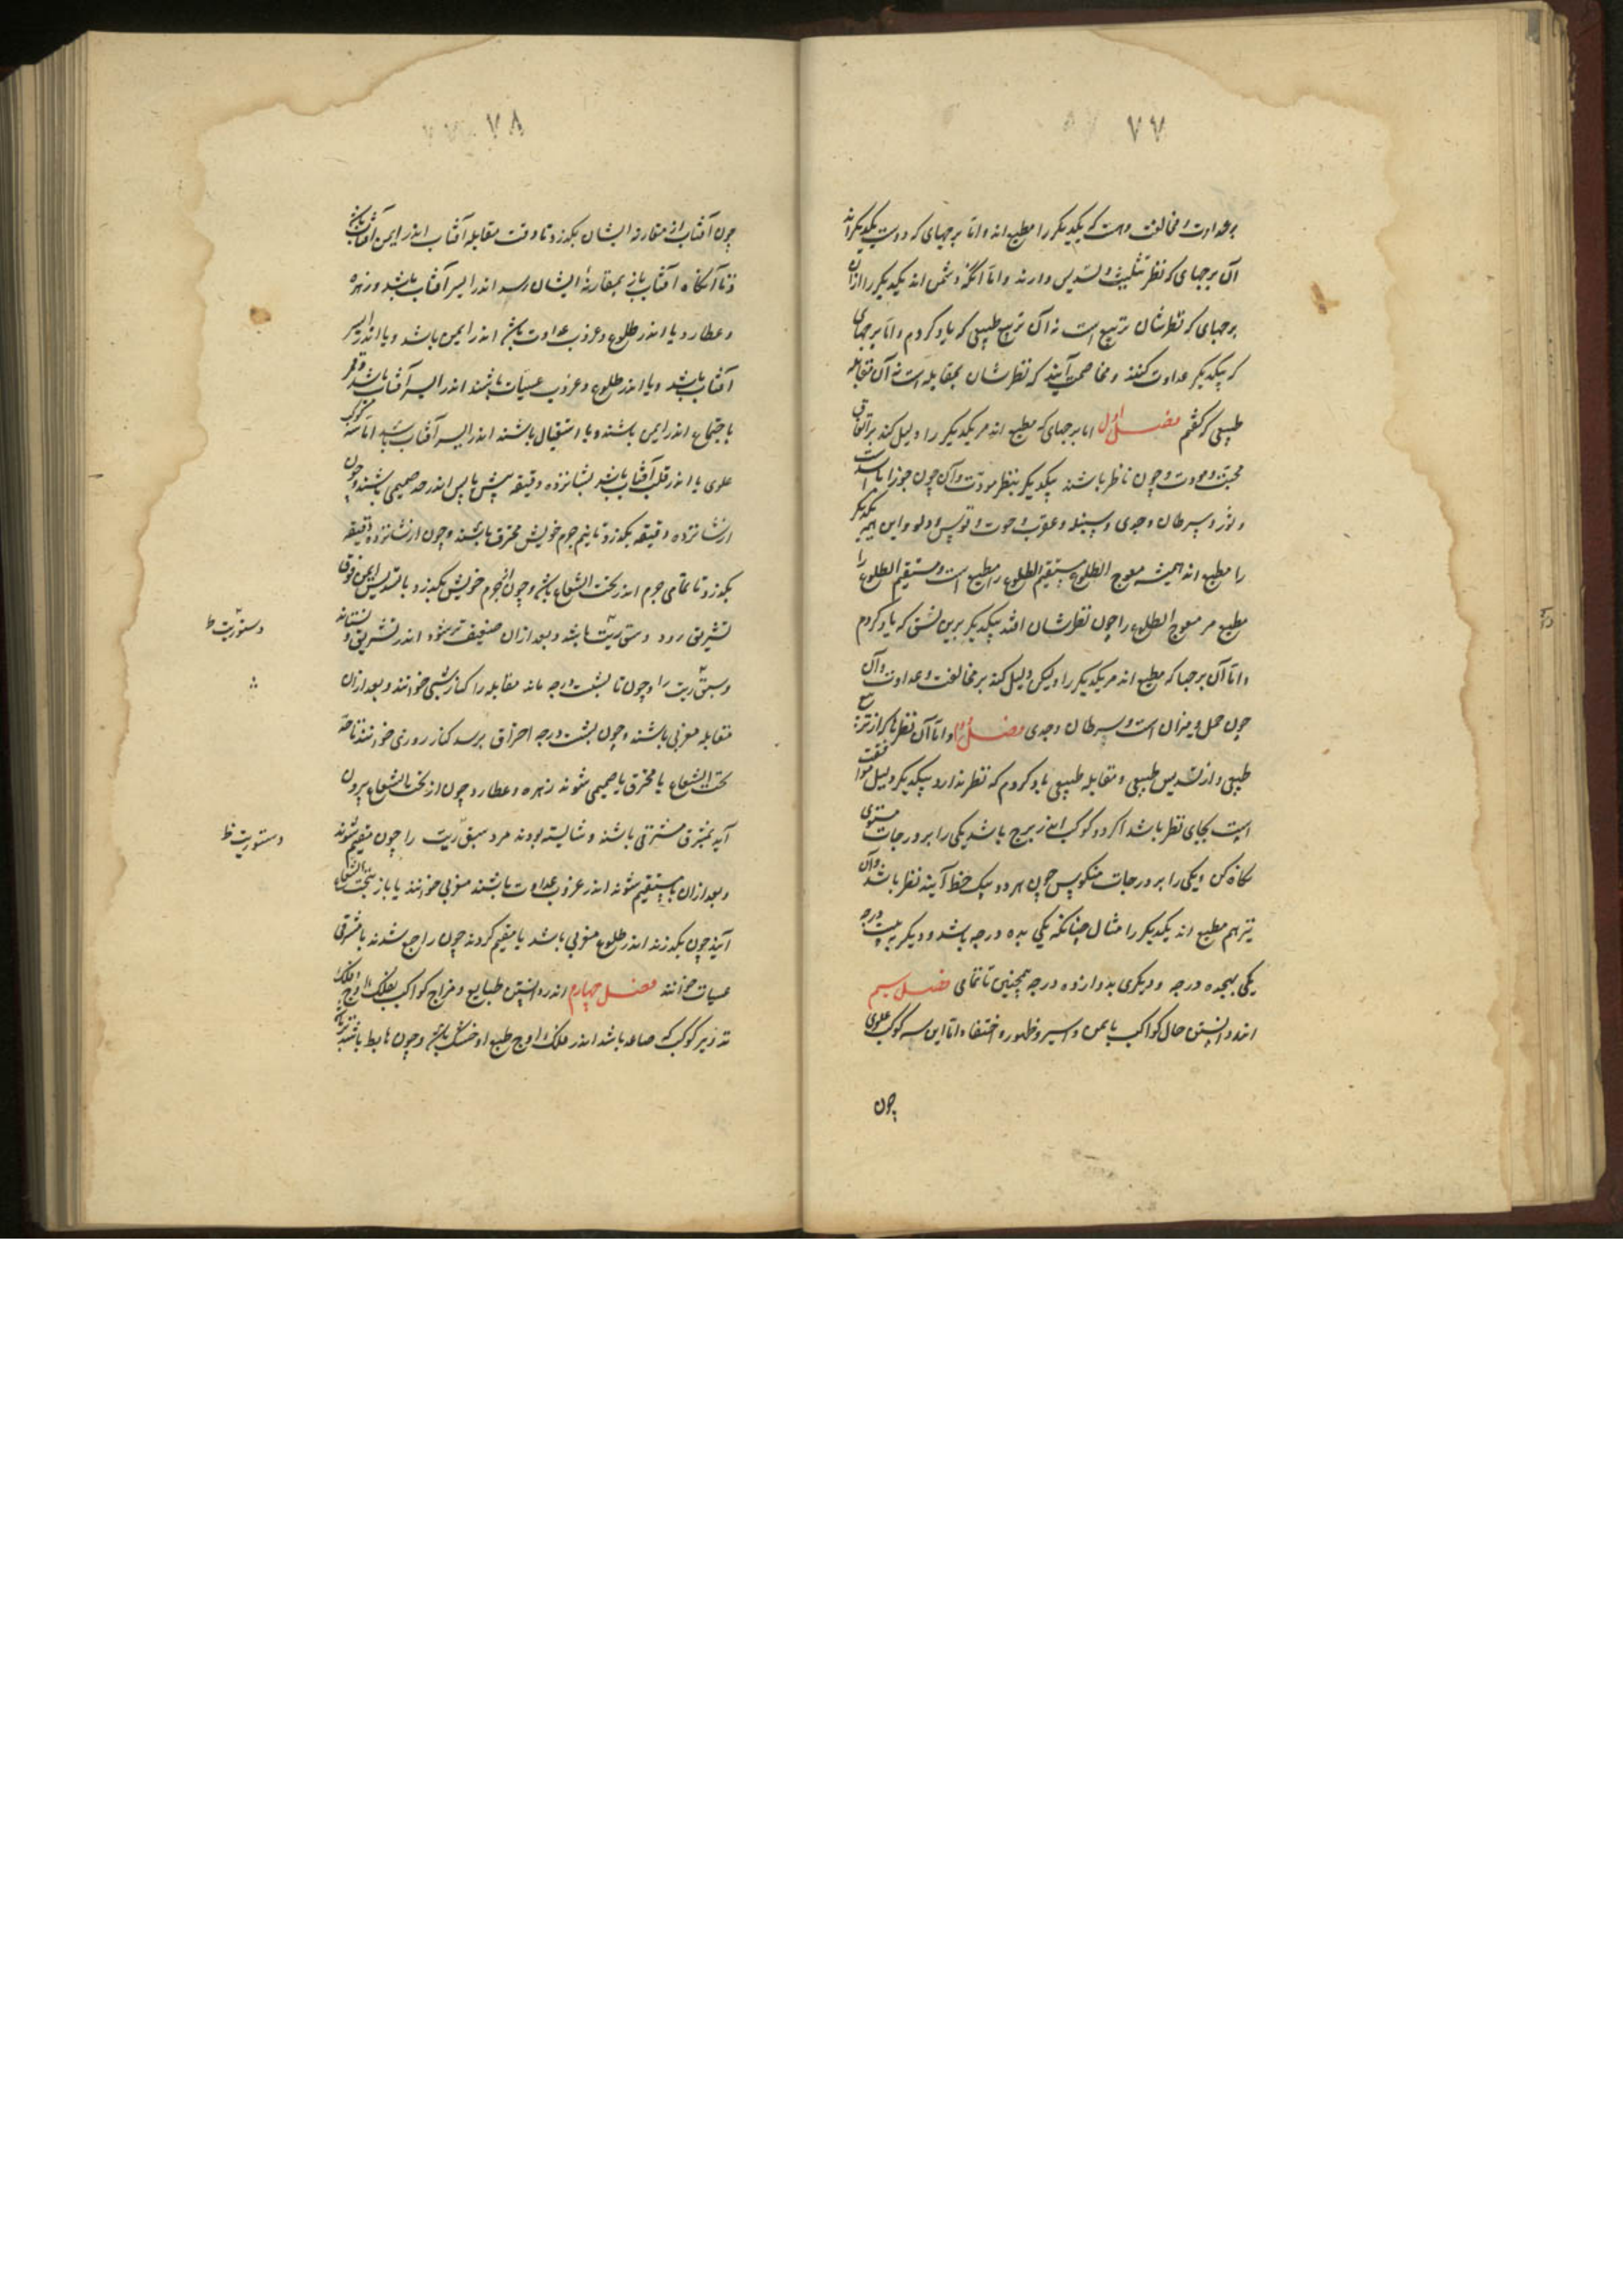 ٧٧
بر عداوت و مخالفت و هست که یکدیگر را مطیع اند و اما برجهای که دوست یکدیگراند
آن برجهای که نظر تثلیث و تسدیس دارند و اما آنکه دشمن اند یکدیگر را از آن
برجهای که نظرشان تربیع است نه آن تربیع طبیعی که یاد کردم و اما برجهای
که بیکدیگر عداوت کنند و مخاصمت آیند که نظرشان بمقابله است نه آن مقابله
طبیعی که گفتم فصل اول اما برجهای که مطیع اند مر یکدیگر را دلیل کند بر اتفاق
محبت و مودت و چون ناظر باشند بیکدیگر بنظر مودت و آن چون جوزا با اسد است
و ثور و سرطان و جدی و سنبله و عقرب و حوت و قوس و دلو و این همه یکدیگر
را مطیع اند همیشه معوج الطلوع مستقیم الطلوع را مطیع است و مستقیم الطلوع را
مطیع مر معوج الطلوع را چون نظرشان افتد بیکدیگر برین نسق که یاد کردم
و اما آن برجها که مطیع اند مر یکدیگر را ولیکن دلیل کند بر مخالفت و عداوت و آن
چون حمل و میزان است و سرطان و جدی فصل دوم و اما آن نظرها که از تربیع
طبیعی و از تسدیس طبیعی و مقابله طبیعی یاد کردم که نظر ندارد بیکدیگر دلیل موافقت
است بجای نظر باشد اگر دو کوکب اندر برج باشد یکی را بر درجات مستوی
نگاه کن و یکی را بر درجات منکوس چون هر دو بیک خط آیند نظر باشد و آن
نیز هم مطیع اند یکدیگر را مثال چنانکه یکی بده درجه باشد و دیگر به بیست درجه
یکی بهجده درجه و دیگری بدوازده درجه همچنین تا تمامی فصل سیم
اندر دانستن حال کواکب بایمن و ایسر و ظهور و اختفا و اما این سه کوکب علوی
چون
٧٨
چون آفتاب از مقارنه ایشان بگذرد تا وقت مقابله آفتاب اندر ایمن آفتاب باشند
و تا آنگاه آفتاب باز بمقارنهٔ ایشان رسد اندر ایسر آفتاب باشد و زهره
و عطارد یا اندر طلوع و غروب غداوت باشند اندر ایمن باشد و یا اندر ایسر
آفتاب باشد و یا اندر طلوع و غروب عشیات باشند اندر ایسر آفتاب باشد و قمر
باجتماع اندر ایمن باشند و یا استقبال باشند اندر ایسر آفتاب باشد اما سه کوکب
علوی یا اندر قلب آفتاب باشد بشانزده دقیقه پیش یا پس اندر حد صمیمی باشند و چون
از شانزده دقیقه بگذرد تا نیم جرم خویش محترق باشند و چون از شانزده دقیقه
بگذرد تا تمامی جرم اندر تحت الشعاع باشند و چون از جرم خویش بگذرد با تسدیس ایمن فوق
تشریق رود و ستوریت باشد و بعد از آن ضعیف تر شود اندر تشریق و
مقابله مغربی باشند و چون بشست درجه احتراق برسد کنار روزی خوانند تا حد
تحت الشعاع یا محترق یا صمیمی شوند زهره و عطارد چون از تحت الشعاع بیرون
آید بمشرق مشرقی باشند و شایسته بودند مر دستوریت را چون مقیم شوند
و بعد از آن مستقیم شوند اندر غروب غداوت باشند مغربی خوانند یا باز بتحت الشعاع
آیند چون بگذرند اندر طلوع مغربی باشد یا مقیم گردند چون راجع شدند با مشرقی
عشیات خوانند فصل چهارم اندر دانستن طبایع و مزاج کواکب بفلک اوج و فلک
تدویر کوکب که صاعد باشد اندر فلک اوج طبع او خشک باشد و چون هابط باشد تر باشد
دستوریت ظ
دستوریت ظ